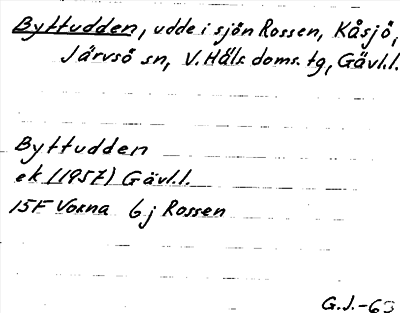 Byttudden, udde i sjön Rossen, Kåsjö,
Järvsö sn, V. Häls. doms. tg, Gävl.l.
Byttudden
ek (1957) Gävl.l.
15F Voxna 6j Rossen
G.J.-63